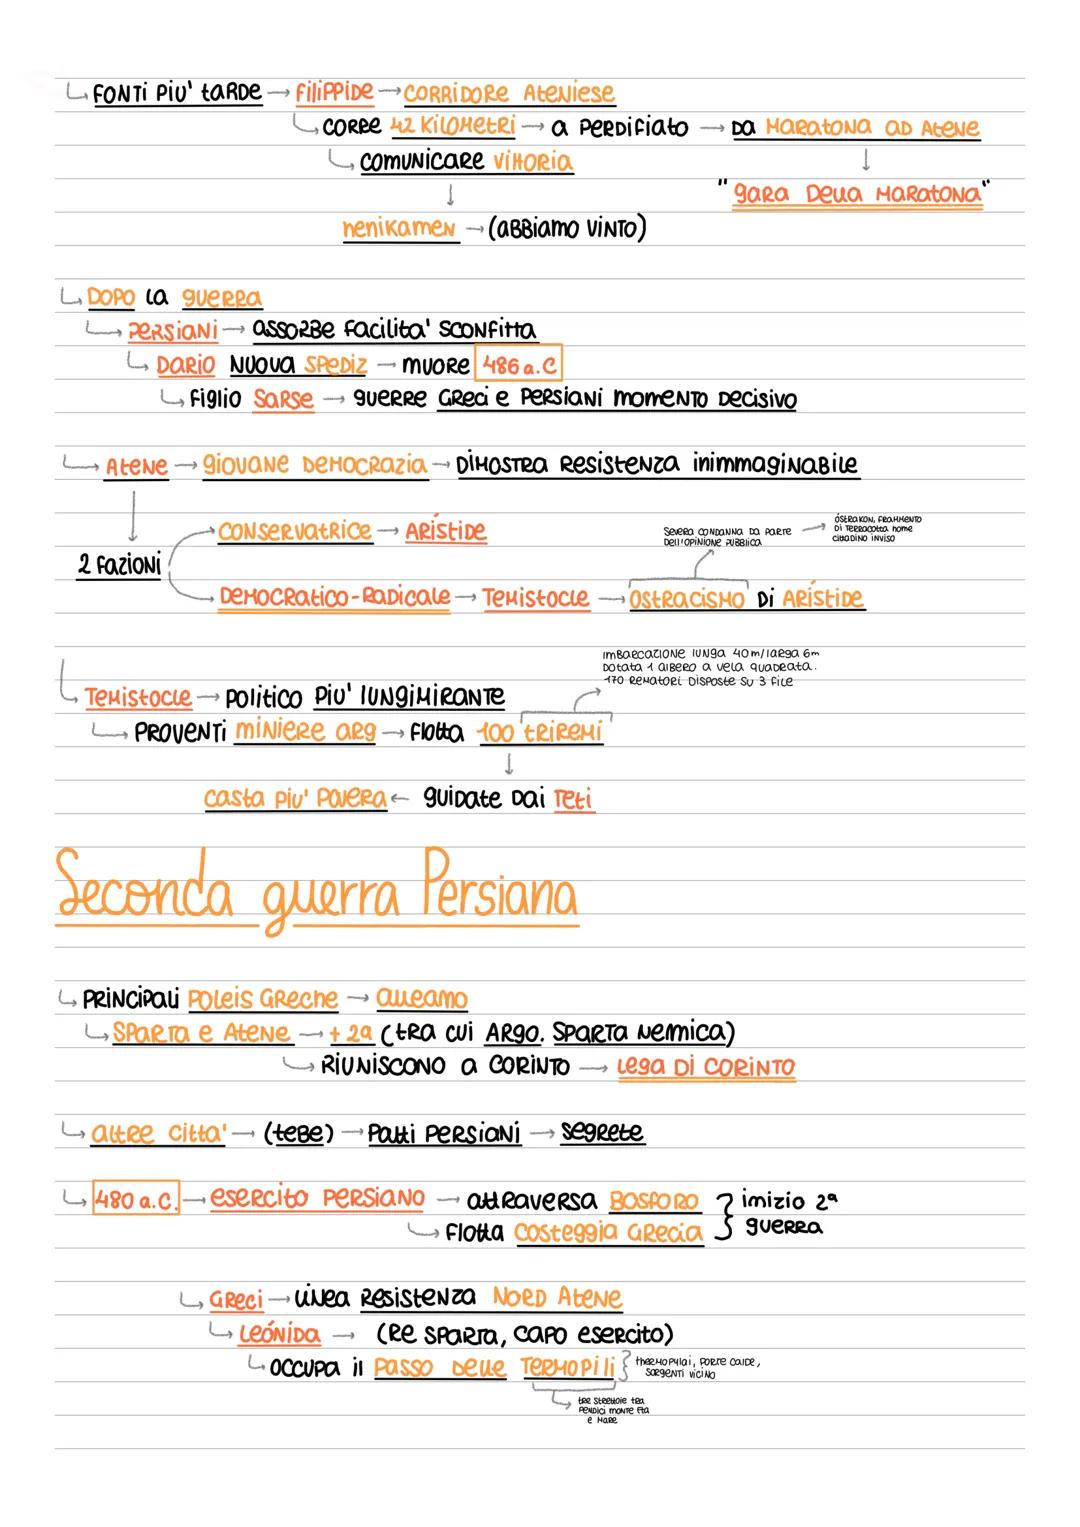 ↳ FONTI PIU' TARDE → FILIPPIDE → CORRIDORE ATENIESE
↳ CORRE 42 KILOMETRI → A PERDIFIATO → DA MARATONA AD ATENE
↳ COMUNICARE VITTORIA ↓
↓ "GARA DELLA MARATONA"
NENIKAMEN → (ABBIAMO VINTO)
↳ DOPO LA GUERRA
↳ PERSIANI → ASSORBE FACILITA' SCONFITTA
↳ DARIO NUOVA SPEDIZ → MUORE 486 a.C
↳ FIGLIO SARSE → GUERRE GRECI E PERSIANI MOMENTO DECISIVO
↳ ATENE → GIOVANE DEMOCRAZIA → DIMOSTRA RESISTENZA INIMMAGINABILE
CONSERVATRICE → ARÍSTIDE
SEVERA CONDANNA DA PARTE → ÓSTRAKON, FRAMMENTO
DELL'OPINIONE PUBBLICA DI TERRACOTTA NOME
CITTADINO INVISO
2 FAZIONI
DEMOCRATICO-RADICALE → TEMISTOCLE → OSTRACISMO DI ARÍSTIDE
IMBARCAZIONE LUNGA 40m/LARGA 6m
DOTATA 1 ALBERO A VELA QUADRATA.
170 REMATORI DISPOSTE SU 3 FILE
↳ TEMISTOCLE → POLITICO PIU' LUNGIMIRANTE
↳ PROVENTI MINIERE ARG → FLOTTA 100 TRIREMI
↓
CASTA PIU' POVERA ← GUIDATE DAI TETI
Seconda guerra Persiana
↳ PRINCIPALI POLEIS GRECHE → ALLEAMO
↳ SPARTA E ATENE → + 29 (TRA CUI ARGO. SPARTA NEMICA)
↳ RIUNISCONO A CORINTO → LEGA DI CORINTO
↳ ALTRE CITTA' → (TEBE) → PATTI PERSIANI → SEGRETE
↳ 480 a.C. → ESERCITO PERSIANO → ATTRAVERSA BOSFORO } IMIZIO 2ª
↳ FLOTTA COSTEGGIA GRECIA GUERRA
↳ GRECI → LINEA RESISTENZA NORD ATENE
↳ LEÓNIDA → (RE SPARTA, CAPO ESERCITO)
↳ OCCUPA IL PASSO DELLE TERMOPILI { THERMOPYLAI, PORTE CALDE,
SORGENTI VICINO
↳ TRE STRETTOIE TRA
PENDICI MONTE ETA
E MARE